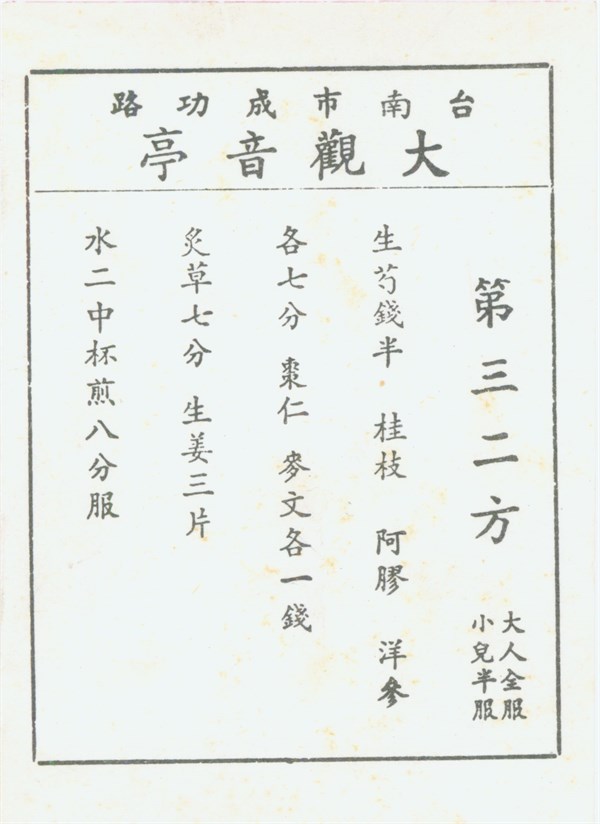 台南市成功路
大觀音亭
第三二方
大人全服
小兒半服
生芍錢半 桂枝 阿膠 洋參
各七分 棗仁 麥文各一錢
炙草七分 生姜三片
水二中杯煎八分服